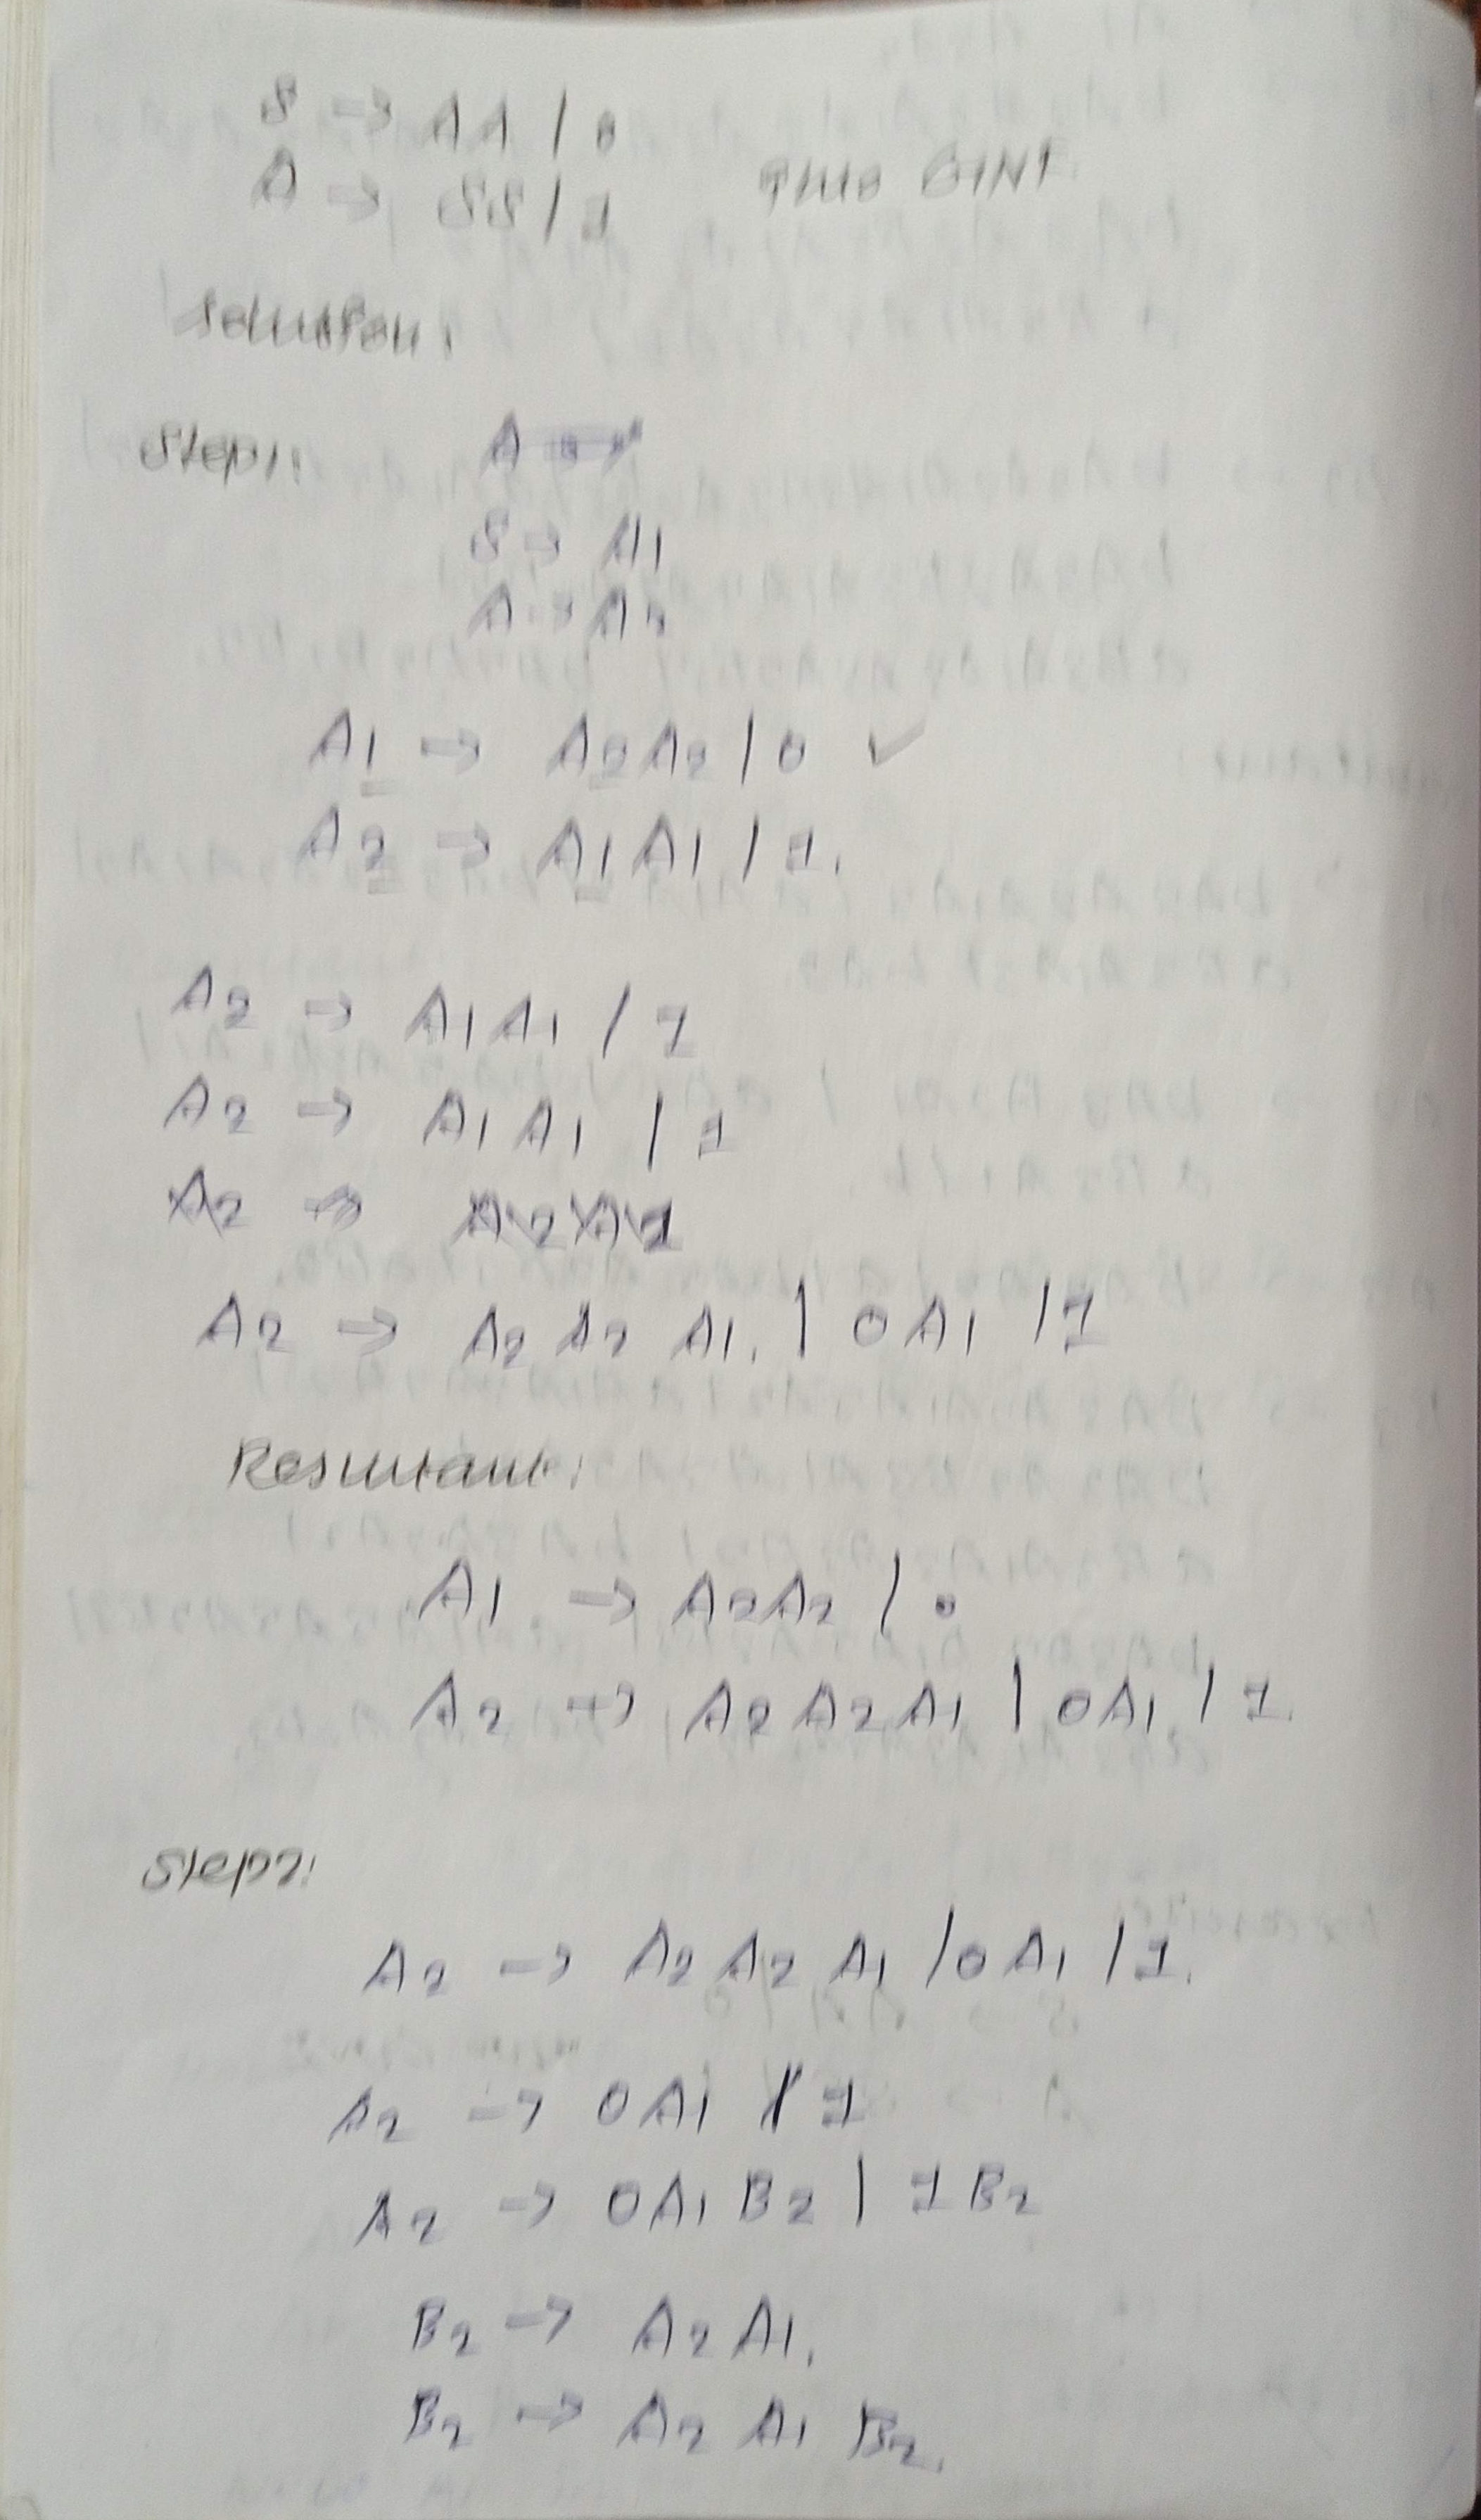 S → AA / 0
A → SS / 1
GNF
Solution:
Step1:
A →
S → A1
A → A2
A1 → A2A2 / 0 ✓
A2 → A1A1 / 1.
A2 → A1A1 / 1
A2 → A1A1 / 1
A2 → A2A2 A1. | 0A1 / 1
Resultant:
A1 → A2A2 / 0
A2 → A2A2A1 | 0A1 / 1.
Step2:
A2 → A2A2 A1 / 0A1 / 1.
A2 → 0A1 / 1
A2 → 0A1B2 | 1B2
B2 → A2A1.
B2 → A2 A1 B2.